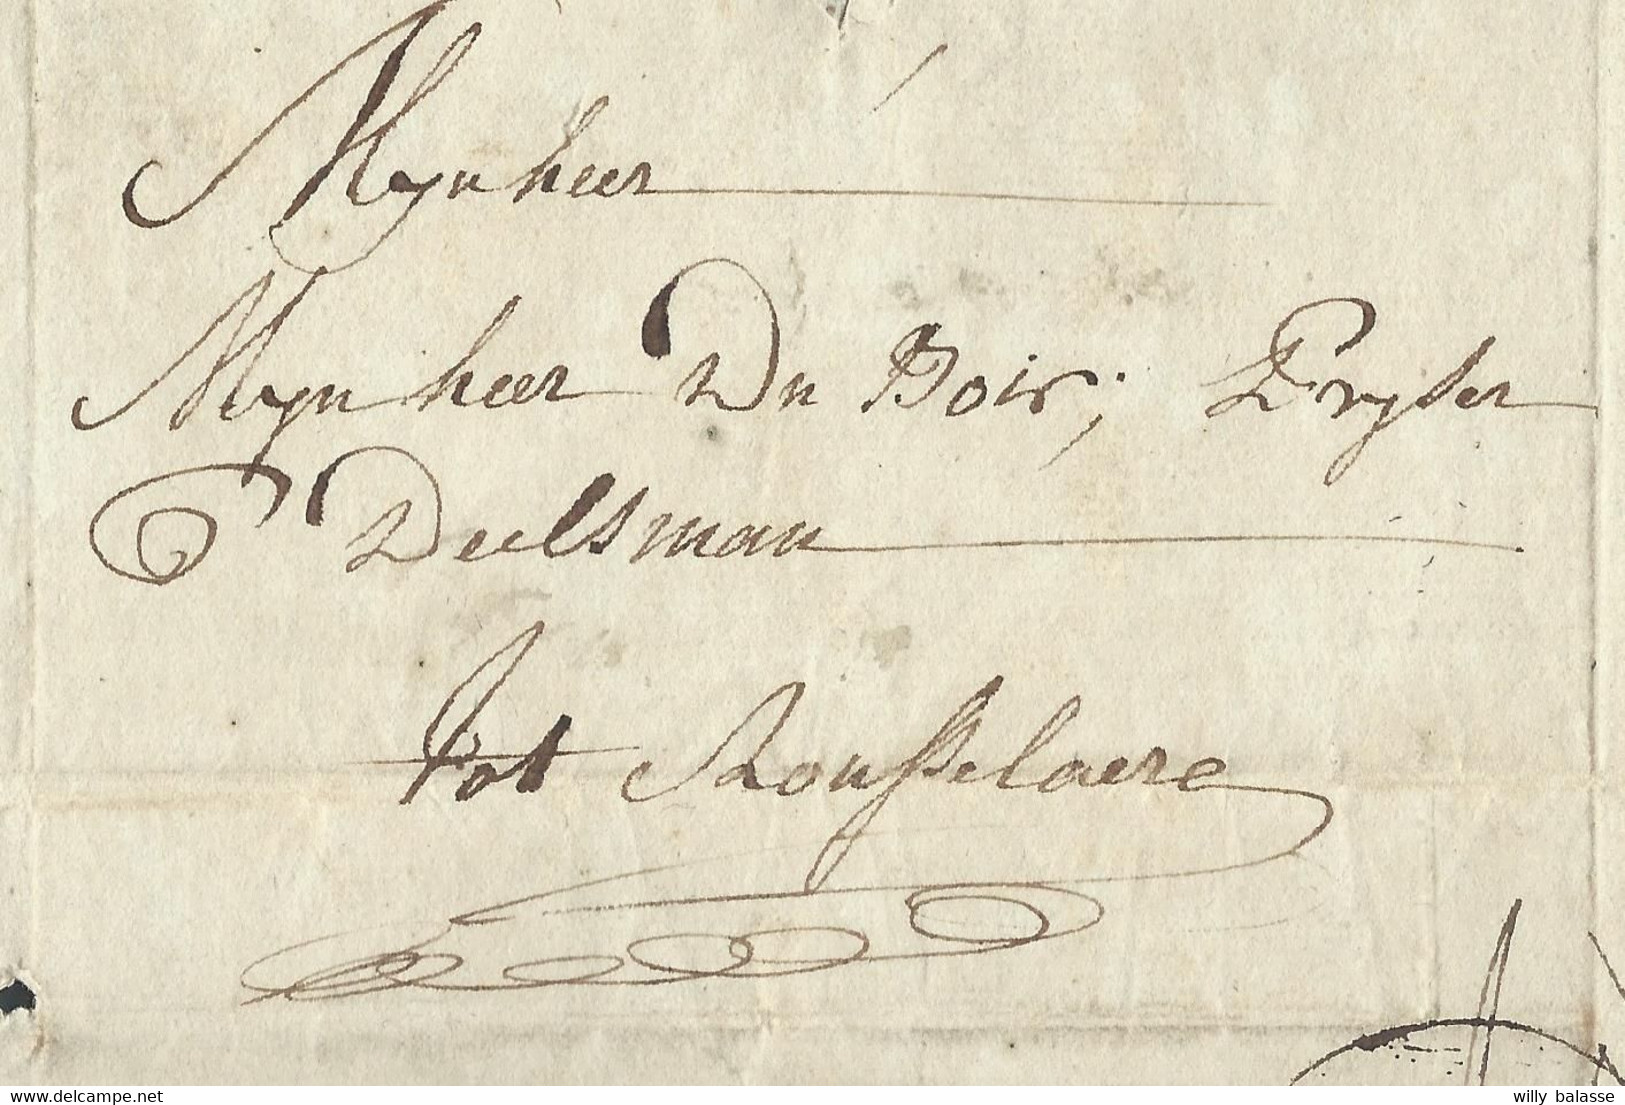 Mynheer
Mynheer Du Bois, Pryser
Deelsman
tot Rousselaere
delcampe.net
willy balasse